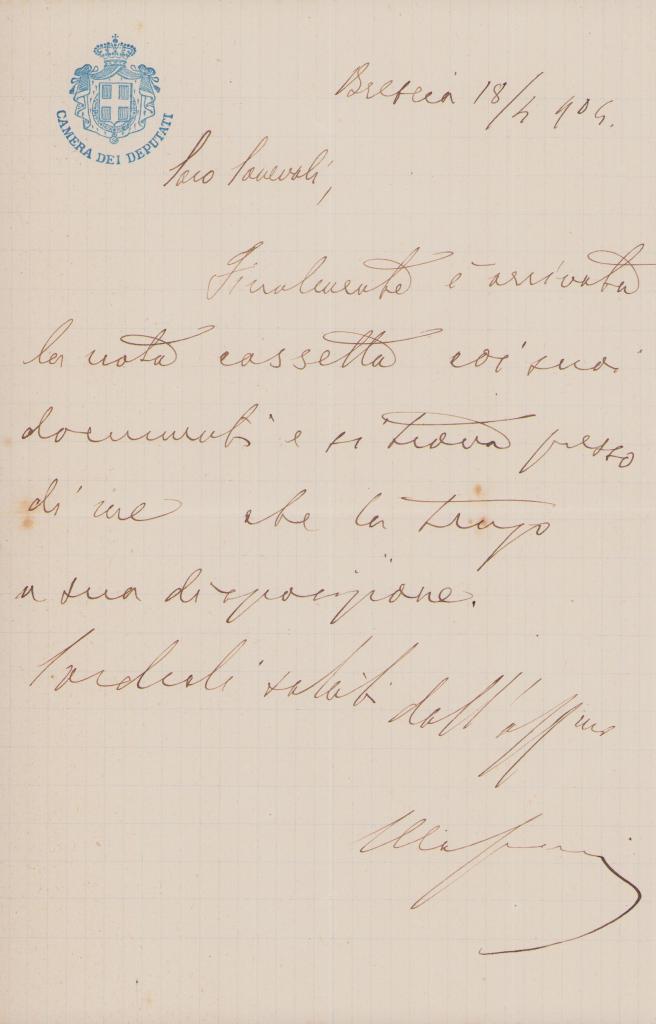 CAMERA DEI DEPUTATI
Brescia 18/4 904.
Caro
Finalmente è arrivata
la nota cassetta coi suoi
documenti e si trova presso
di me che la tengo
a sua disposizione.
Cordiali saluti dall'affmo